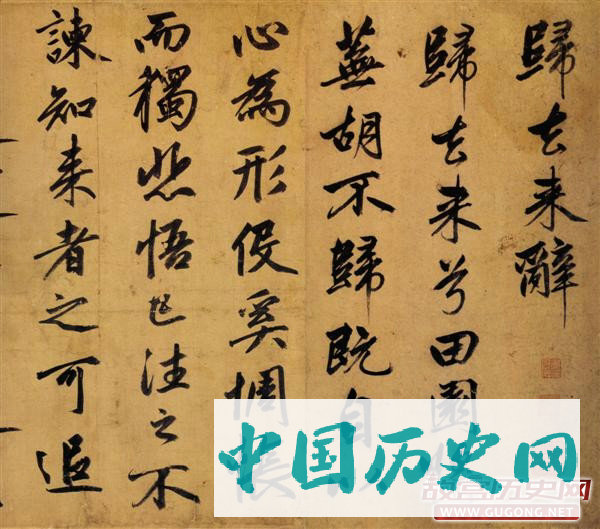 歸去来辭
歸去来兮田園
蕪胡不歸既自
心為形役奚惆悵
而獨悲悟已往之不
諫知来者之可追
中国历史网
故宫历史网
WWW.GUGONG.NET